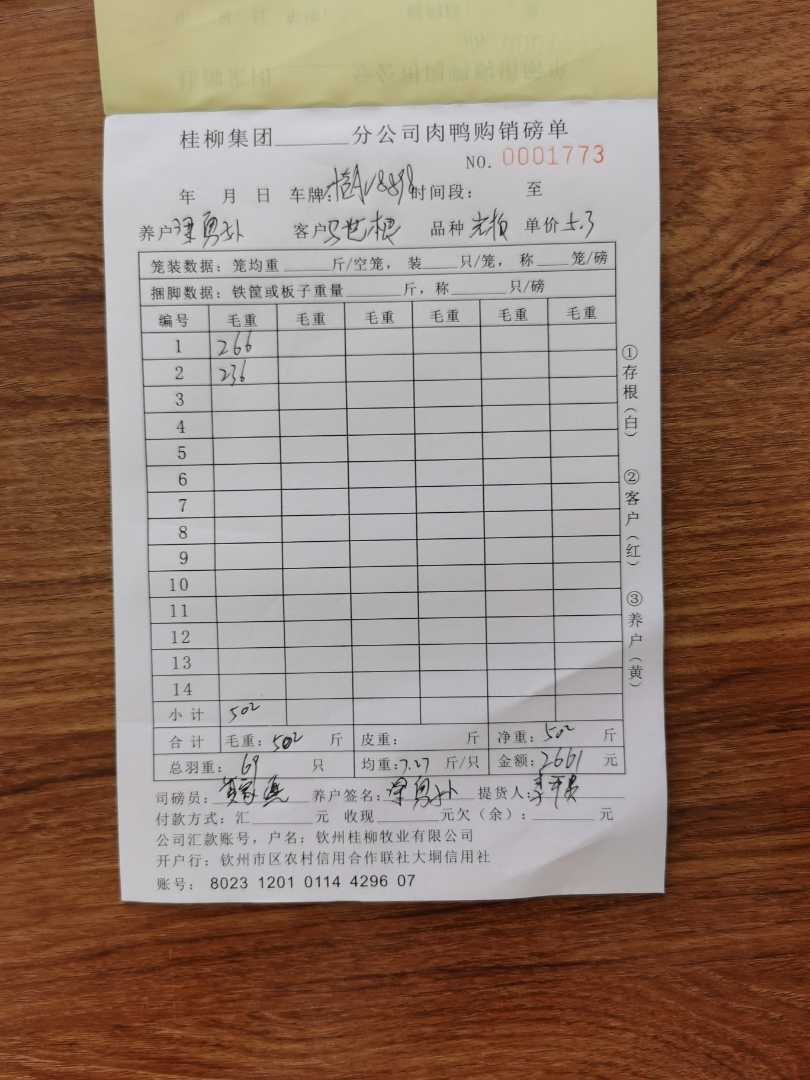 桂柳集团______分公司肉鸭购销磅单
NO. 0001773
年 月 日 车牌: 时间段: 至
养户 梁勇 客户 马世根 品种 单价 5.3
笼装数据: 笼均重______斤/空笼, 装____只/笼, 称____笼/磅
捆脚数据: 铁筐或板子重量______斤, 称______只/磅
编号 毛重 毛重 毛重 毛重 毛重 毛重
1 266
2 236
3
4
5
6
7
8
9
10
11
12
13
14
小计 502
合计 毛重: 502 斤 皮重: 斤 净重: 502 斤
总羽重: 69 只 均重: 7.27 斤/只 金额: 2661 元
司磅员: 养户签名: 梁勇 提货人: 李
付款方式: 汇______元 收现______元欠(余): ______元
公司汇款账号, 户名: 钦州桂柳牧业有限公司
开户行: 钦州市区农村信用合作联社大垌信用社
账号: 8023 1201 0114 4296 07
①存根(白) ②客户(红) ③养户(黄)